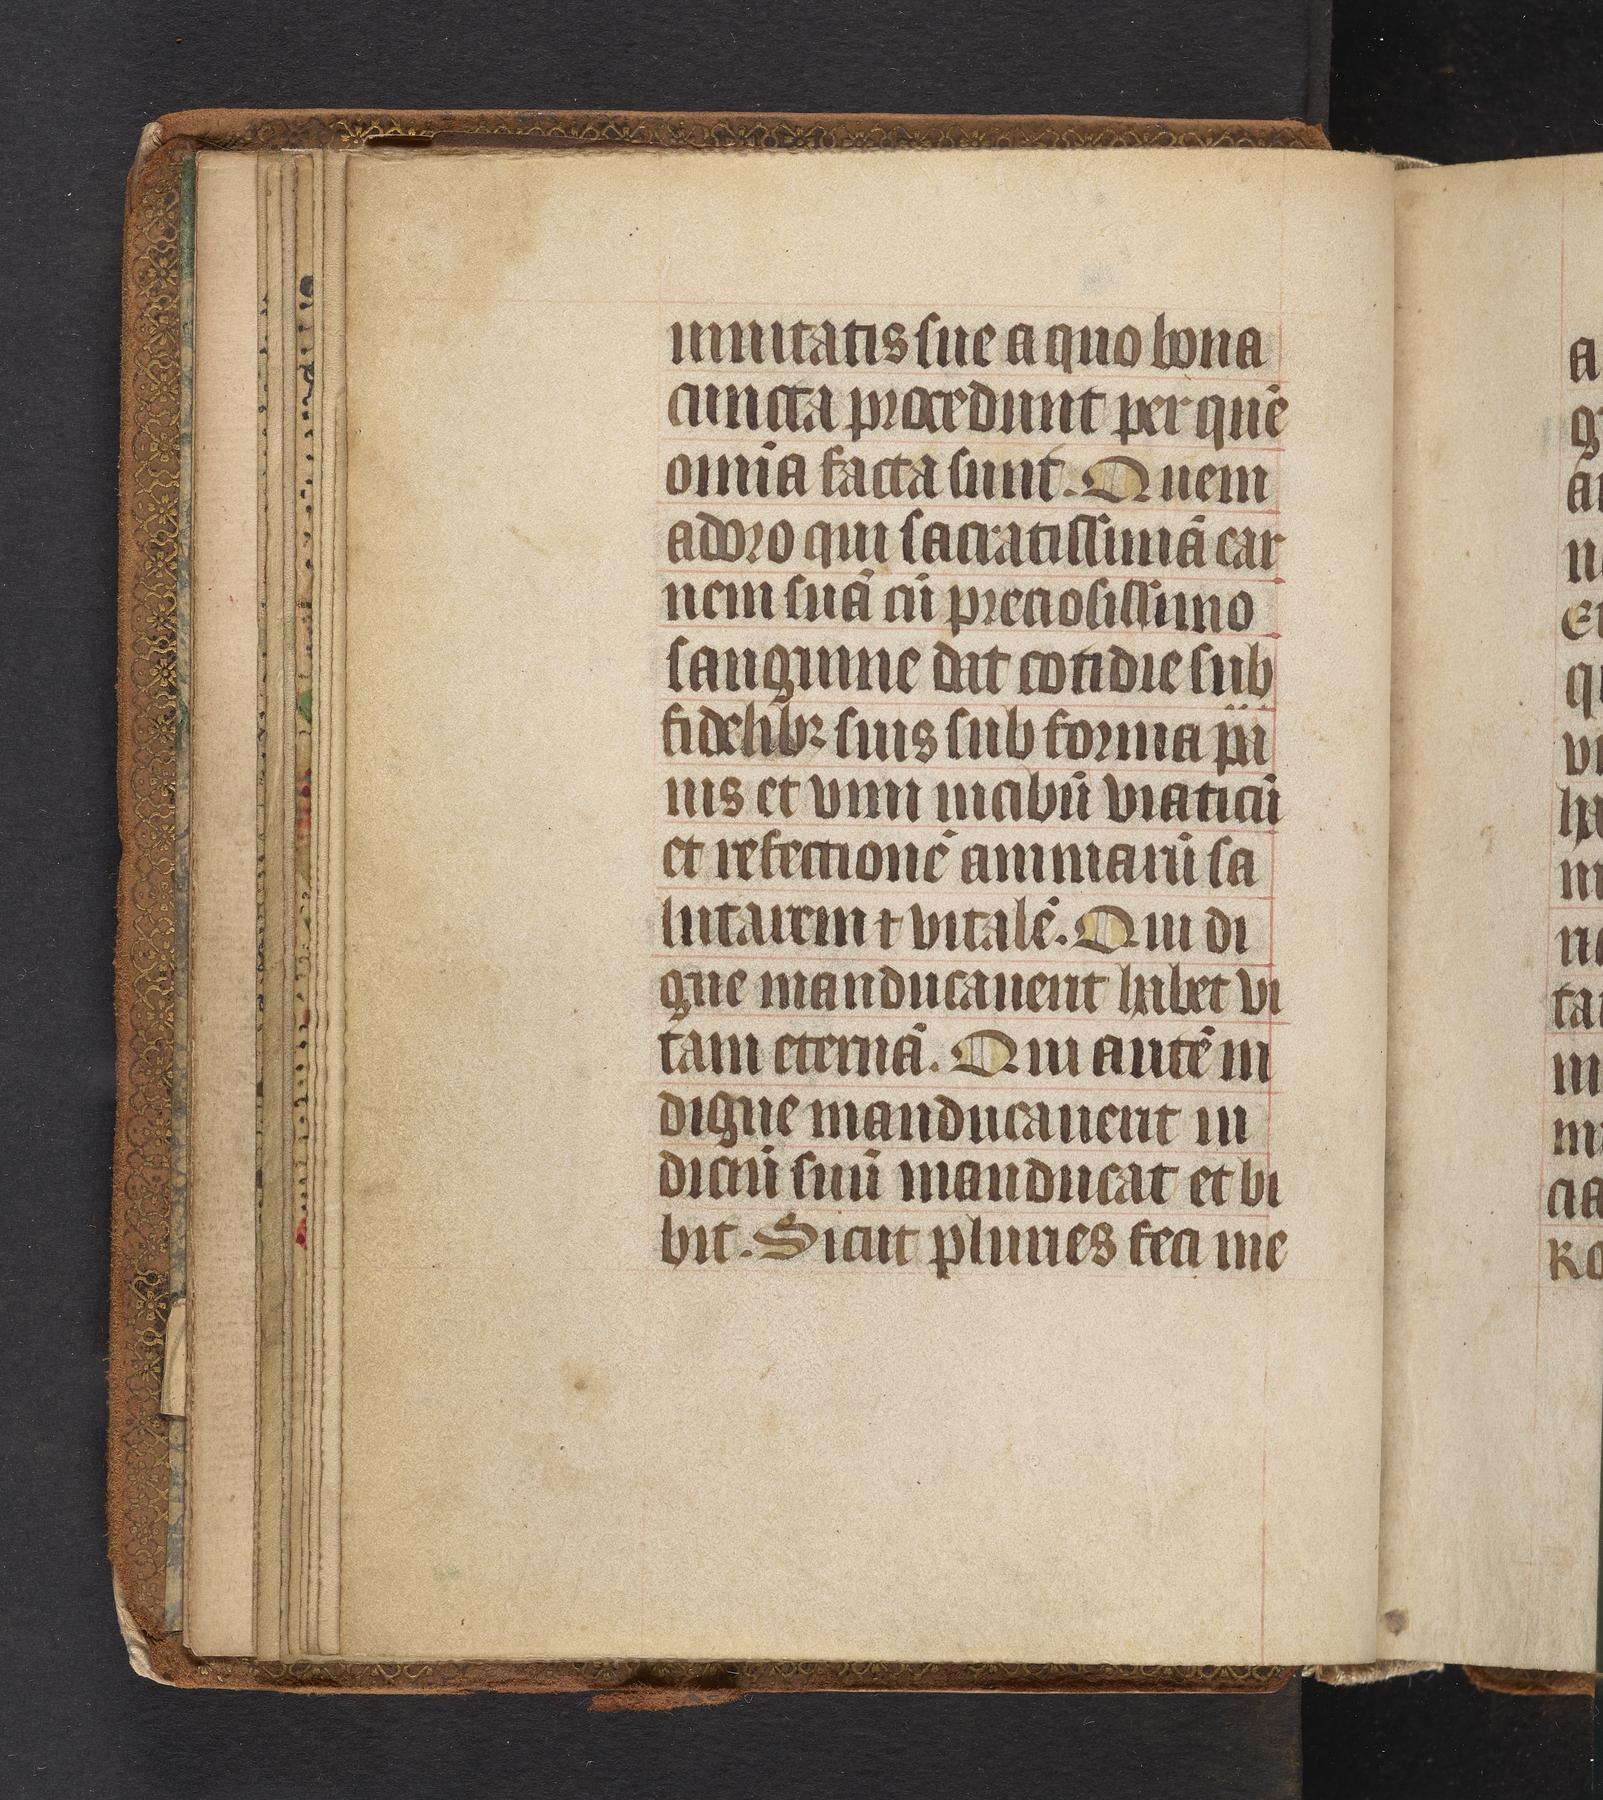 inuitatis sue a quo bona
cuncta procedunt per quē
om̄ia facta sunt. Quem
adoro qui sacratissimā car
nem suā cū preciosissimo
sanguine dat cotidie sub
fidelibꝫ suis sub forma pa
nis et vini in cibū viaticū
et refectionē animarū sa
lutarem ⁊ vitalē. Qui di
gne manducauerit habet vi
tam eternā. Qui autē in
digne manducauerit iu
diciū suū manducat et bi
bit. Sicut pluries feci me